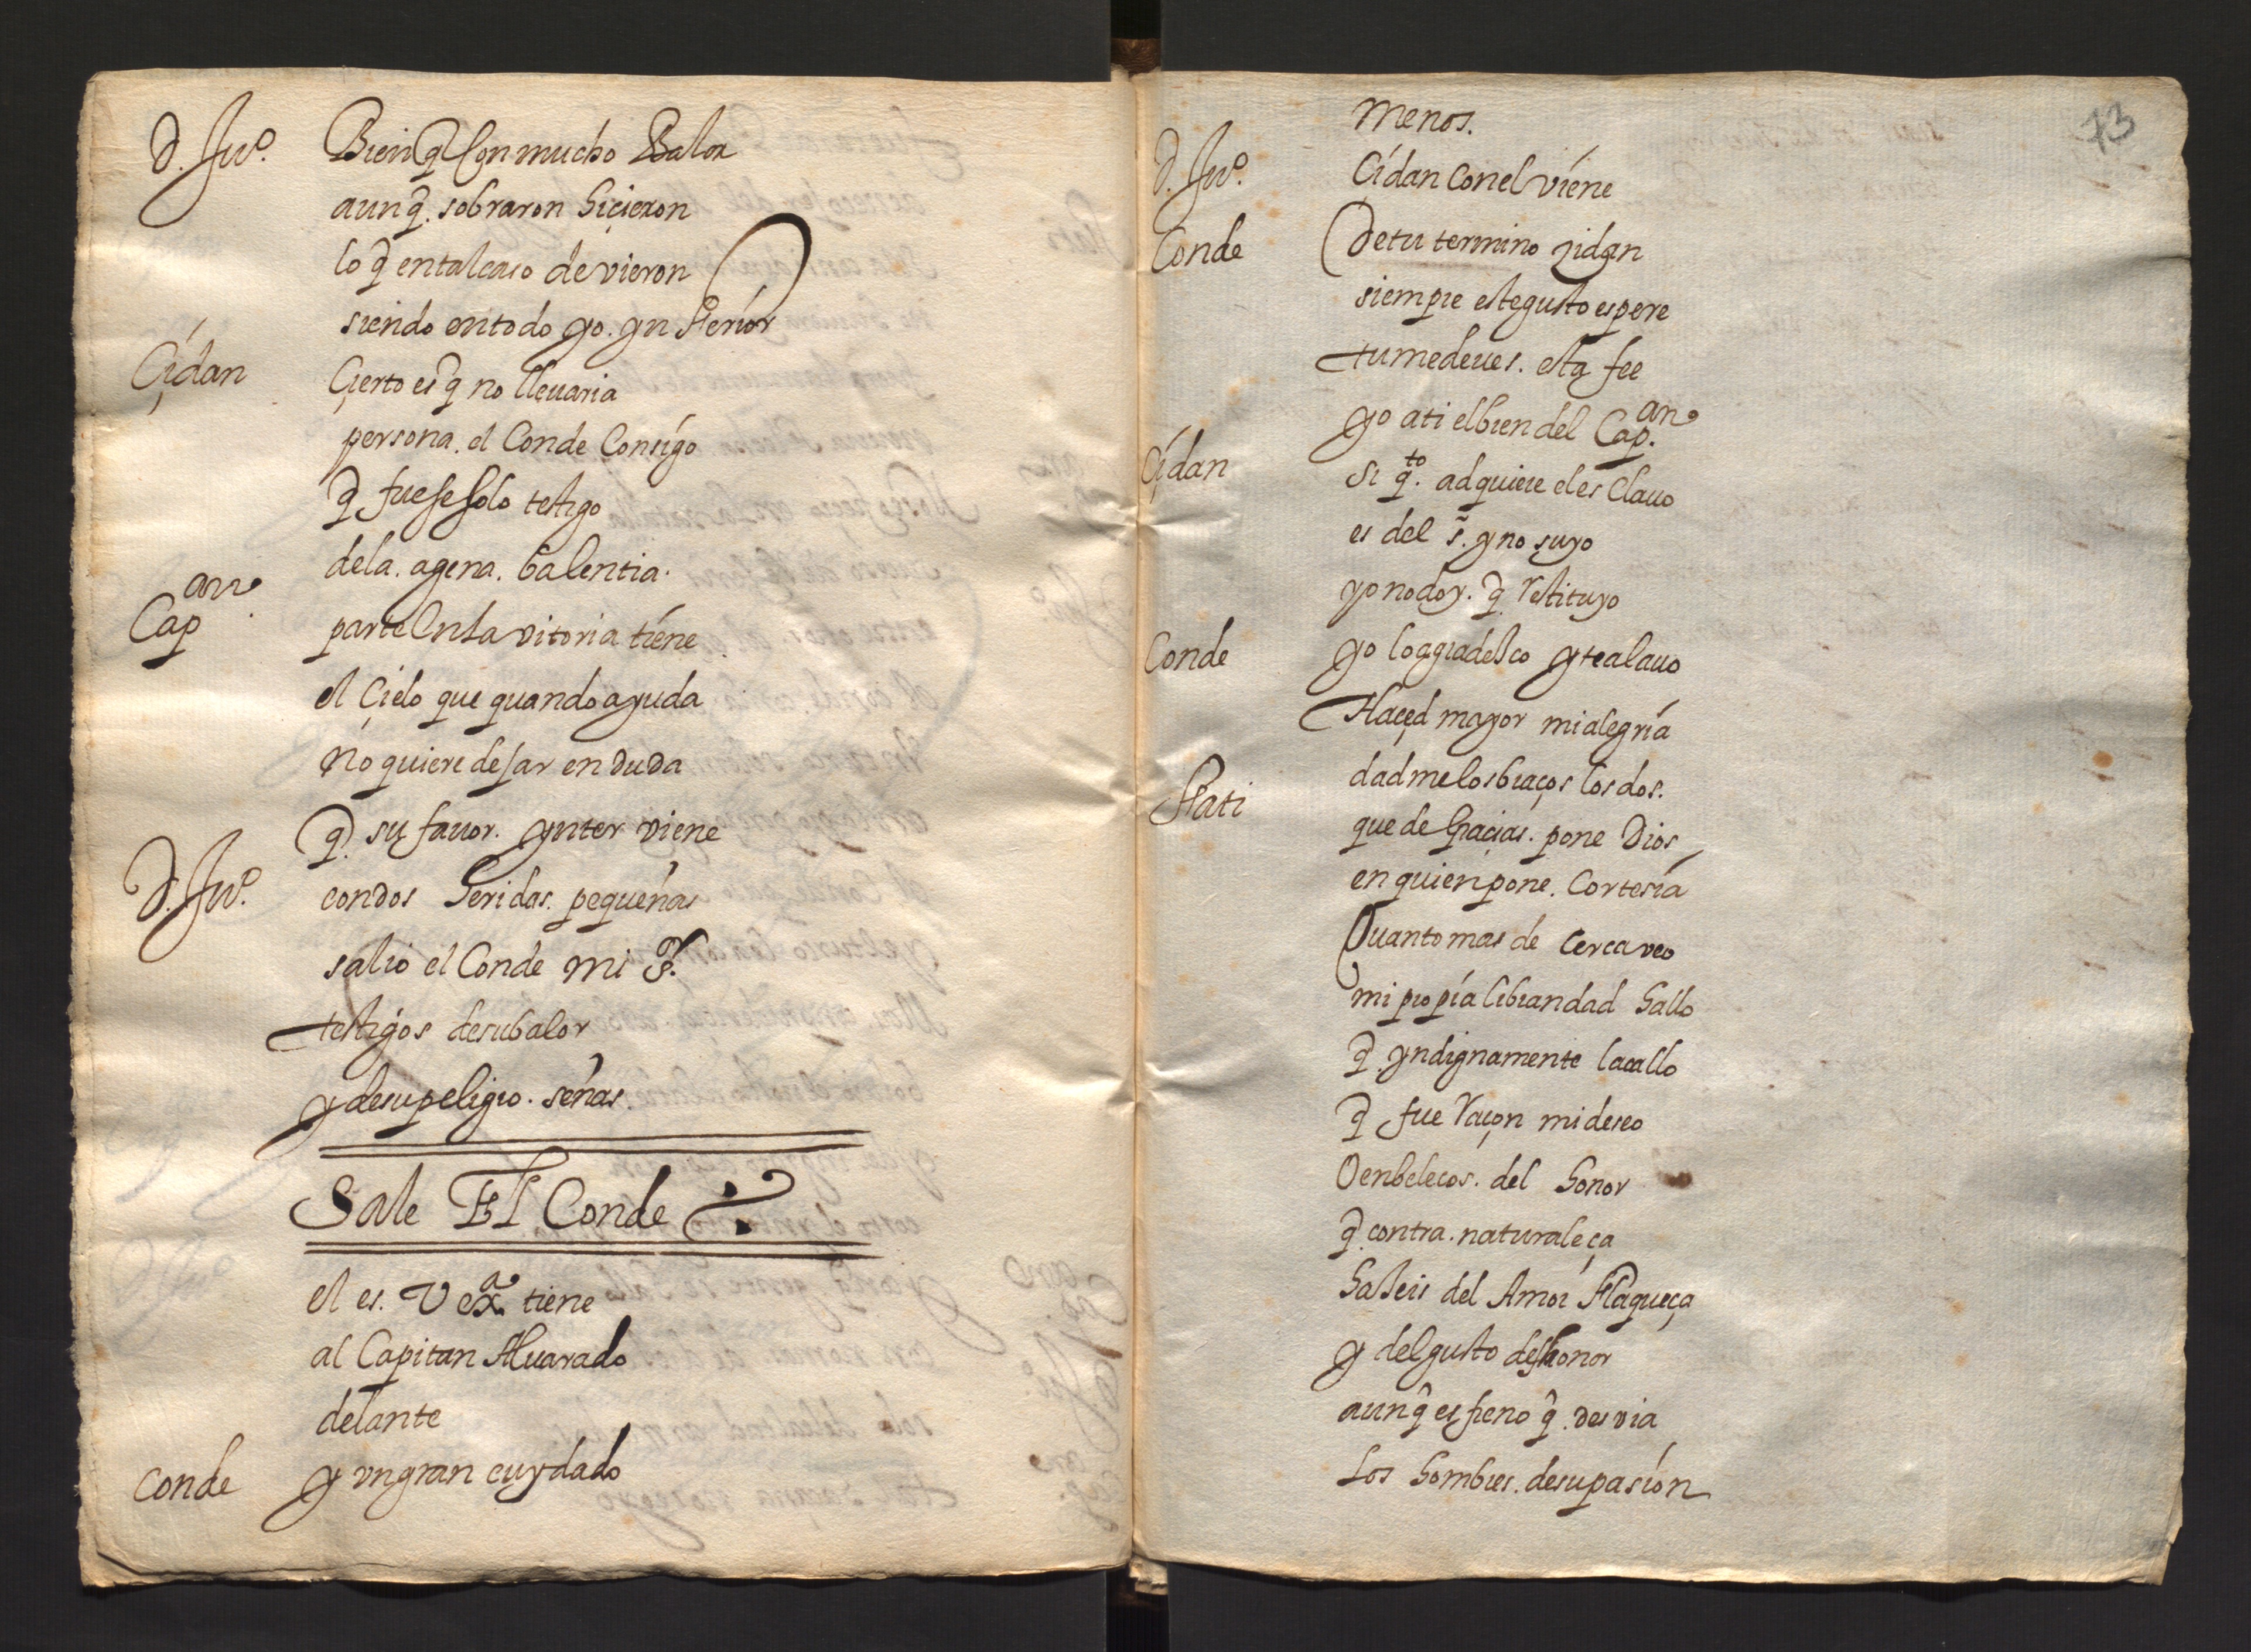 D. Juº. Bien q̃ con mucho Balor
aunq̃. sobraron hiçieron
lo q̃ en tal caso devieron
siendo en todo yo. ynfferior
Çidan Çierto es q̃ no lleuaria
persona. el Conde Consigo
q̃ fuese solo testigo
de la. agena. balentia.
Cap.an parte en la vitoria tiene
el Çielo que quando ayuda
No quiere dejar en duda
q̃. su fauor. ynter viene
D. Juº. con dos heridas. pequeñas
salio el Conde mi s.r
testigos de su balor
y de su peligro. señas.
Sale El Conde
el es. V ex.a tiene
al Capitan Aluarado
delante
Conde y vn gran cuydado
73
menos.
D. Juº. Çidan con el viene
Conde De tu termino zidan
siempre este gusto espere
tu me deues. esta fee
yo a ti el bien del Cap.an
Çidan Si q.to adquiere el esclauo
es del s̃. y no suyo
yo no doy. q̃ restituyo
Conde yo lo agradesco y te alauo
Haçed mayor mi alegria
dadme los braços los dos.
Fati que de Graçias. pone Dios
en quien pone. Cortesia
Quanto mas de cerca veo
mi propia libiandad hallo
q̃. yndignamente la callo
q̃ fue raçon mi deseo
O enbelecos. del honor
q̃. contra. naturaleça
haçeis del Amor fflaqueça
y del gusto deshonor
aunq̃ es freno q̃. desvia
Los hombres. de su pasion